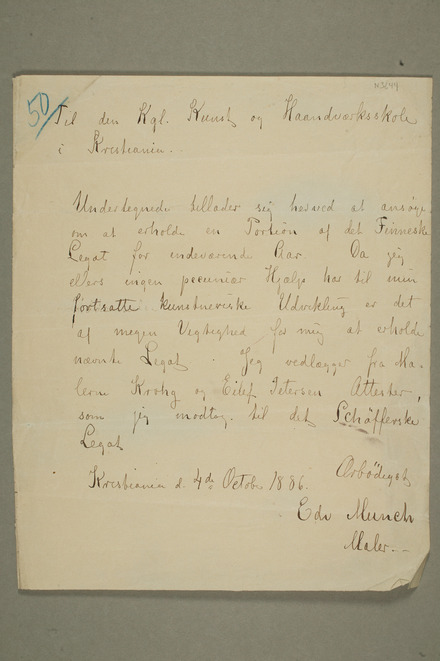 50
N3244
Til den Kgl. Kunst og Haandværksskole
i Kristiania.
Undertegnede tillader sig herved at ansøge
om at erholde en Portion af det Finneske
Legat for indeværende Aar. Da jeg
ellers ingen pecuniær Hjælp har til min
fortsatte kunstneriske Udvikling er det
af megen Vigtighed for mig at erholde
nævnte Legat. Jeg vedlægger fra Ma-
lerne Krohg og Eilef Petersen Attester,
som jeg modtog til det Schäfferske
Legat
Ærbødigst
Kristiania d. 4de October 1886.
Edv Munch
Maler.